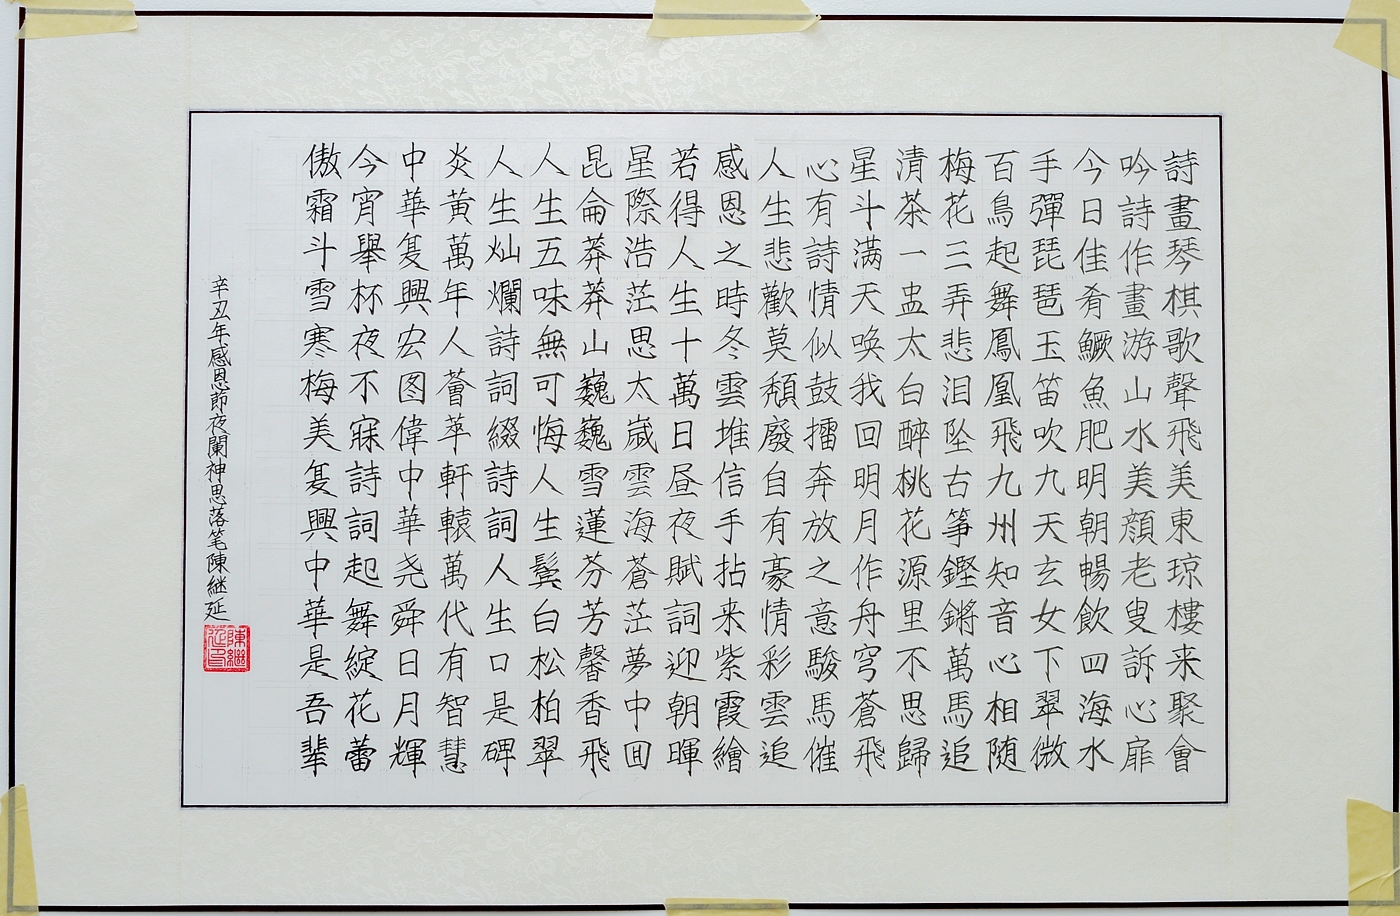 詩畫琴棋歌聲飛美東瓊樓来聚會
吟詩作畫游山水美顔老叟訴心扉
今日佳肴鱖魚肥明朝暢飲四海水
手彈琵琶玉笛吹九天玄女下翠微
百鳥起舞鳳凰飛九州知音心相随
梅花三弄悲泪坠古筝鏗鏘萬馬追
清茶一盅太白醉桃花源里不思歸
星斗满天唤我回明月作舟穹蒼飛
心有詩情似鼓擂奔放之意駿馬催
人生悲歡莫頽廢自有豪情彩雲追
感恩之時冬雲堆信手拈来紫霞繪
若得人生十萬日昼夜賦詞迎朝暉
星際浩茫思太歲雲海蒼茫夢中回
昆侖莽莽山巍巍雪蓮芬芳馨香飛
人生五味無可悔人生鬓白松柏翠
人生灿爛詩詞綴詩詞人生口是碑
炎黄萬年人薈萃軒轅萬代有智慧
中華复興宏图偉中華尧舜日月輝
今宵舉杯夜不寐詩詞起舞綻花蕾
傲霜斗雪寒梅美复興中華是吾輩
辛丑年感恩節夜闌神思落笔陳継延
陳継延印